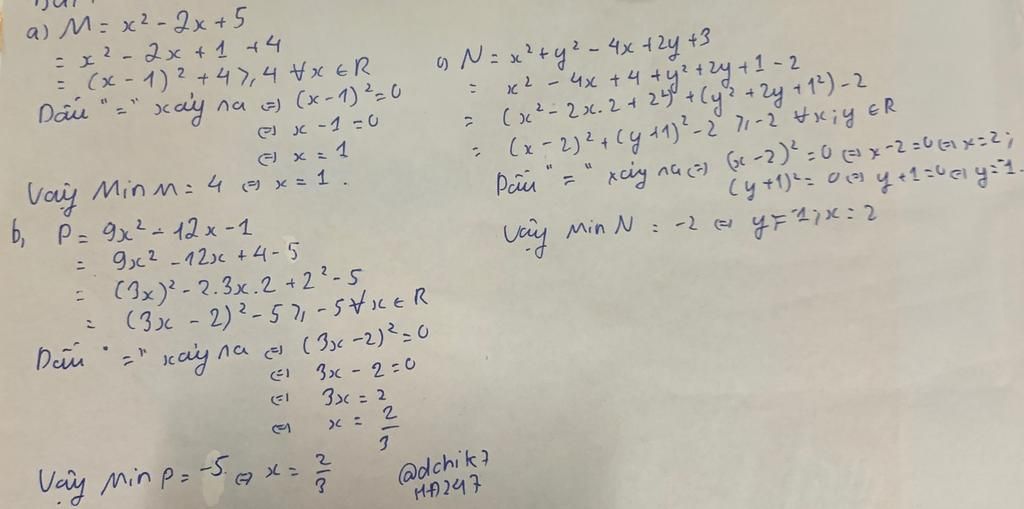 a) M = x² - 2x + 5
= x² - 2x + 1 + 4
= (x - 1)² + 4 ≥ 4 ∀x ∈ R
Dấu "=" xảy ra ⇔ (x - 1)² = 0
⇔ x - 1 = 0
⇔ x = 1
Vậy Min M = 4 ⇔ x = 1.
b, P = 9x² - 12x - 1
= 9x² - 12x + 4 - 5
= (3x)² - 2.3x.2 + 2² - 5
= (3x - 2)² - 5 ≥ -5 ∀x ∈ R
Dấu "=" xảy ra ⇔ (3x - 2)² = 0
⇔ 3x - 2 = 0
⇔ 3x = 2
⇔ x = 2/3
Vậy Min P = -5 ⇔ x = 2/3
@dchik7
HA247
c) N = x² + y² - 4x + 2y + 3
= x² - 4x + 4 + y² + 2y + 1 - 2
= (x² - 2x.2 + 2²) + (y² + 2y + 1²) - 2
= (x - 2)² + (y + 1)² - 2 ≥ -2 ∀x;y ∈ R
Dấu "=" xảy ra ⇔ (x - 2)² = 0 ⇔ x - 2 = 0 ⇔ x = 2;
(y + 1)² = 0 ⇔ y + 1 = 0 ⇔ y = -1.
Vậy Min N = -2 ⇔ y = -1; x = 2